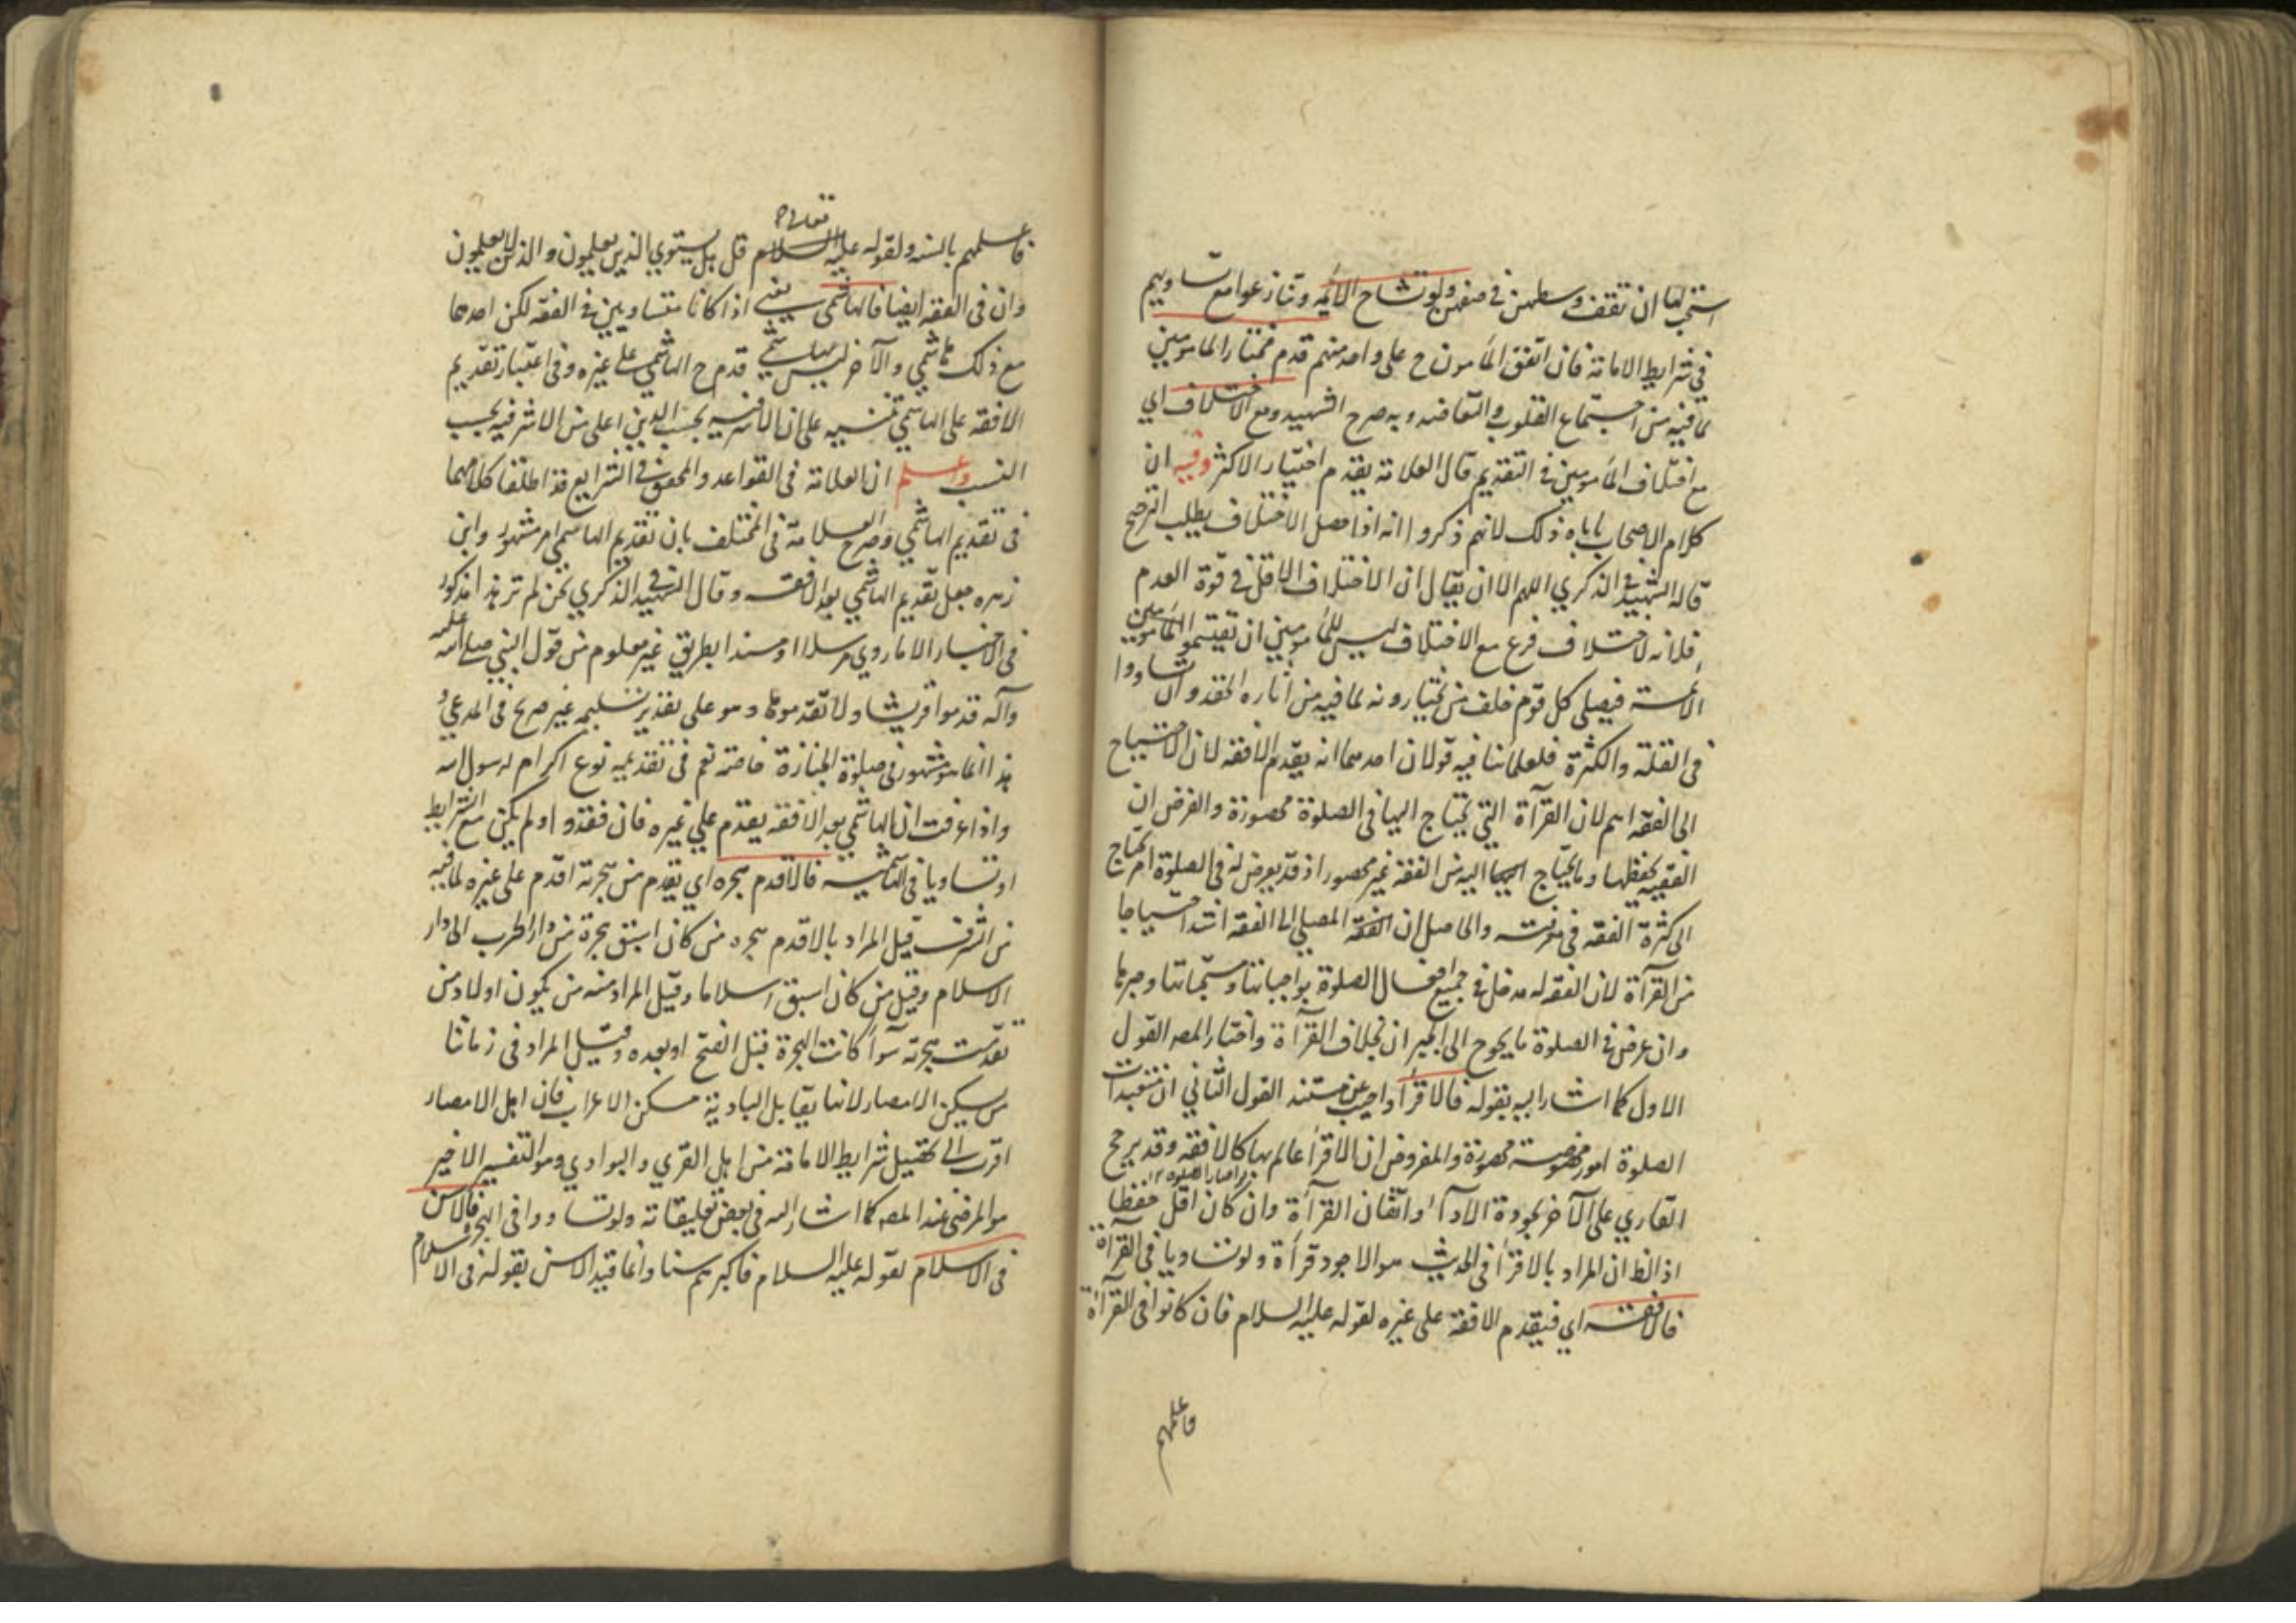 استحب لها ان تقف وسطهن في صفهن ولو تشاح الأئمة وتنازعوا مع تساويهم
في شرايط الامامة فان اتفق المأمون ح على واحد منهم قدم مختار المامومين
لما فيه من اجتماع القلوب والتعاضد وبه صرح الشهيد ومع الاختلاف اي
مع اختلاف المأمومين في التقديم قال العلامة يقدم اختيار الاكثر وفيه ان
كلام الاصحاب يأباه ذلك لانهم ذكروا انه اذا حصل الاختلاف يطلب الترجيح
قاله الشهيد في الذكري اللهم الا ان يقال ان الاختلاف الاقل في قوة العدم
فلانه لاختلاف فرع مع الاختلاف ليس للمأمومين ان يقتسموا المأمومين
الأئمة فيصلي كل قوم خلف من يختارونه لما فيه من اثارة الحقد وان تساووا
في القلة والكثرة فلعلمائنا فيه قولان احدهما انه يقدم الافقه لان الاحتياج
الى الفقه اهم لان القرآة التي يحتاج اليها في الصلوة محصورة والفرض ان
الفقيه يحفظها وما يحتاج اليه من الفقه غير محصور اذ قد يعرض له في الصلوة امر يحتاج
الى كثرة الفقه في معرفته والحاصل ان الفقه المصلي الى الفقه اشد احتياجا
من القرآة لان الفقه له مدخل في جميع افعال الصلوة بواجباتها ومستحباتها وجبرها
وان عرض في الصلوة ما يحوج الى الجبران بخلاف القرآة واختار المصه القول
الاول كما اشار اليه بقوله فالاقرأ واجيب عن مستند القول الثاني ان متعبدات
الصلوة امور مخصوصة محصورة والمفروض ان الاقرأ عالم بها كالافقه وقد يرجح
القاري على الآخر بجودة الادآء واتقان القرآة وان كان اقل حفظا
اذ الظ ان المراد بالاقرأ في الحديث هو الاجود قرآة ولو تساويا في القرآة
فالافقه اي فيقدم الافقه على غيره لقوله عليه السلام فان كانوا في القرآة
فاعلمهم
تعالى
فاعلمهم بالسنه ولقوله عليه السلام قل هل يستوي الذين يعلمون والذين لا يعلمون
وان في الفقه ايضا فالهاشمي يعني اذا كانا متساويين في الفقه لكن احدهما
مع ذلك هاشمي والآخر ليس بهاشمي قدم ح الهاشمي على غيره وفي اعتبار تقديم
الافقه على الهاشمي تنبيه على ان الاشرفيه بحسب الدين اعلى من الاشرفيه بحسب
النسب واعلم ان العلامة في القواعد والمحقق في الشرايع قد اطلقا كلامهما
في تقديم الهاشمي وصرح العلامة في المختلف بان تقديم الهاشمي امر مشهور وابن
زهره جعل تقديم الهاشمي بعد الافقه وقال الشهيد في الذكري نحن لم نر هذا مذكورا
في الاخبار الا ما روي مرسلا او مسندا بطريق غير معلوم من قول النبي صلى الله عليه
وآله قدموا قريشا ولا تقدموها وهو على تقدير تسليمه غير صريح في المدعي و
هذا انما هو مشهور في صلوة الجنازة خاصة نعم في تقديمه نوع اكرام لرسول الله
واذا عرفت ان الهاشمي بعد الافقه يقدم على غيره فان فقدوا ولم يكن مع الشرايط
او تساويا في الهاشمية فالاقدم هجره اي يقدم من هجرته اقدم على غيره لما فيه
من الشرف قيل المراد بالاقدم هجره من كان اسبق هجرة من دار الحرب الى دار
الاسلام وقيل من كان اسبق اسلاما وقيل المراد منه من يكون اولاد من
تقدمت هجرته سوآء كانت الهجرة قبل الفتح او بعده وقيل المراد في زماننا
من يسكن الامصار لانها يقابل البادية مسكن الاعراب فان اهل الامصار
اقرب الى تحصيل شرايط الامامة من اهل القري والبوادي وهو التفسير الاخير
هو المرضي عند المصه كما اشار اليه في بعض تعليقاته ولو تساووا في الهجرة فالاسن
في الاسلام لقوله عليه السلام فاكبرهم سنا وانما قيد الاسن بقوله في الاسلام